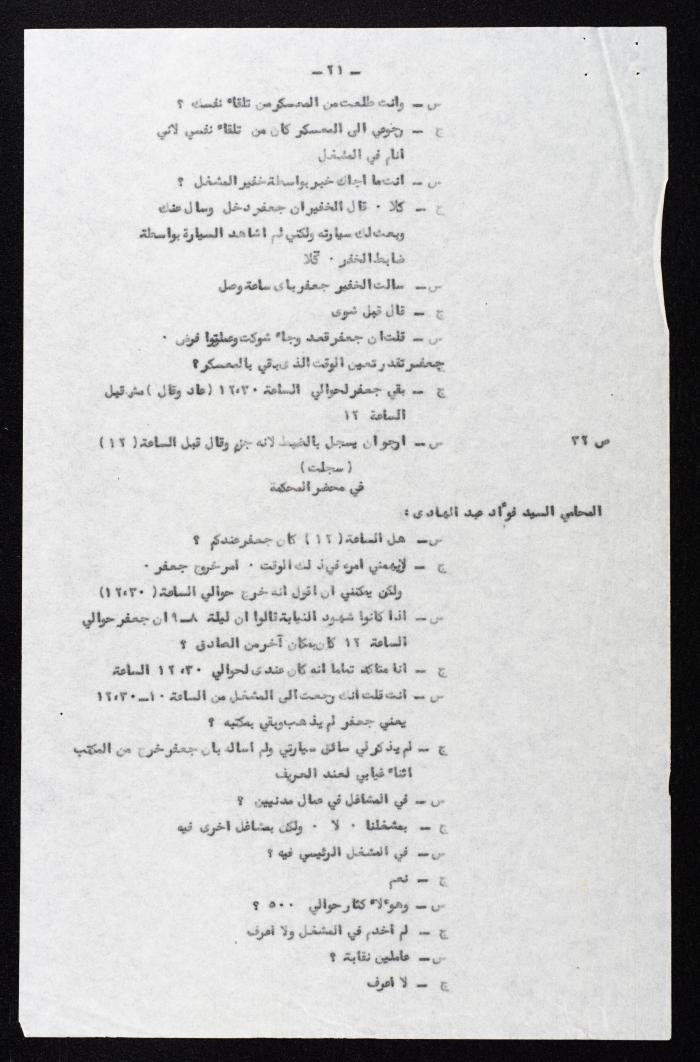 ـ ٢١ ـ
س ـ وانت طلعت من المعسكر من تلقاء نفسك ؟
ج ـ رجوعي الى المعسكر كان من تلقاء نفسي لاني
انام في المشغل
س ـ انت ما اجاك خبر بواسطة خفير المشغل ؟
ج ـ كلا ٠ قال الخفير ان جعفر دخل وسال عنك
وبعث لك سيارته ولكني لم اشاهد السيارة بواسطة
ضابط الخفر ٠ كلا
س ـ سالت الخفير جعفر باى ساعة وصل
ج ـ قال قبل شوى
س ـ قلت ان جعفر قعد وجاء شوكت وعملتوا فرض ٠
جعفر تقدر تعين الوقت الذى بقي بالمعسكر ؟
ج ـ بقي جعفر لحوالي الساعة ١٢،٣٠ (عاد وقال ) مش قبل
الساعة ١٢
ص ٣٢ س ـ ارجو ان يسجل بالضبط لانه جزم وقال قبل الساعة ( ١٢ )
( سجلت )
في محضر المحكمة
المحامي السيد فؤاد عبد الهادى :
س ـ هل الساعة ( ١٢ ) كان جعفر عندكم ؟
ج ـ لايهمني امره في ذلك الوقت ٠ امر خروج جعفر ٠
ولكن يمكنني ان اقول انه خرج حوالي الساعة ( ١٢،٣٠ )
س ـ اذا كانوا شهود النيابة قالوا ان ليلة ٨ ـ ٩ ان جعفر حوالي
الساعة ١٢ كان بمكان آخر من الصادق ؟
ج ـ انا متاكد تماما انه كان عندى لحوالي ١٢،٣٠ الساعة
س ـ انت قلت انك رجعت الى المشغل من الساعة ١٠ ـ ١٢،٣٠
يعني جعفر لم يذهب وبقي بمكتبه ؟
ج ـ لم يذكر لي سائق سيارتي ولم اساله بان جعفر خرج من المكتب
اثناء غيابي لعند الحريف
س ـ في المشاغل في عمال مدنيين ؟
ج ـ بمشغلنا ٠ لا ٠ ولكن بمشاغل اخرى فيه
س ـ في المشغل الرئيسي فيه ؟
ج ـ نعم
س ـ وهؤلاء كثار حوالي ٥٠٠ ؟
ج ـ لم اخدم في المشغل ولا اعرف
س ـ عاملين نقابة ؟
ج ـ لا اعرف